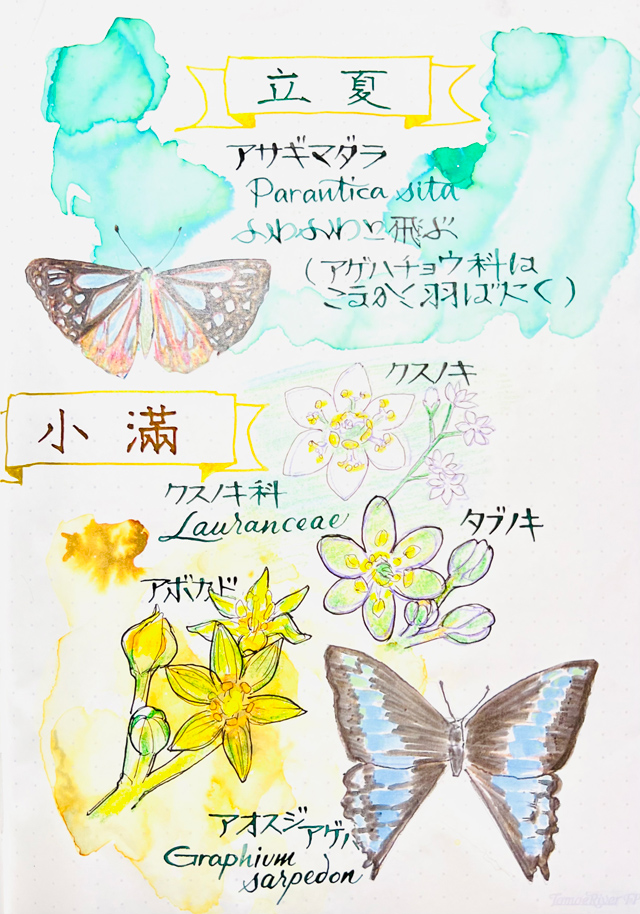 立夏
アサギマダラ
Parantica sita
ふわふわと飛ぶ
(アゲハチョウ科は
こまかく羽ばたく)
クスノキ
小満
クスノキ科
Lauranceae
タブノキ
アボカド
アオスジアゲハ
Graphium
sarpedon